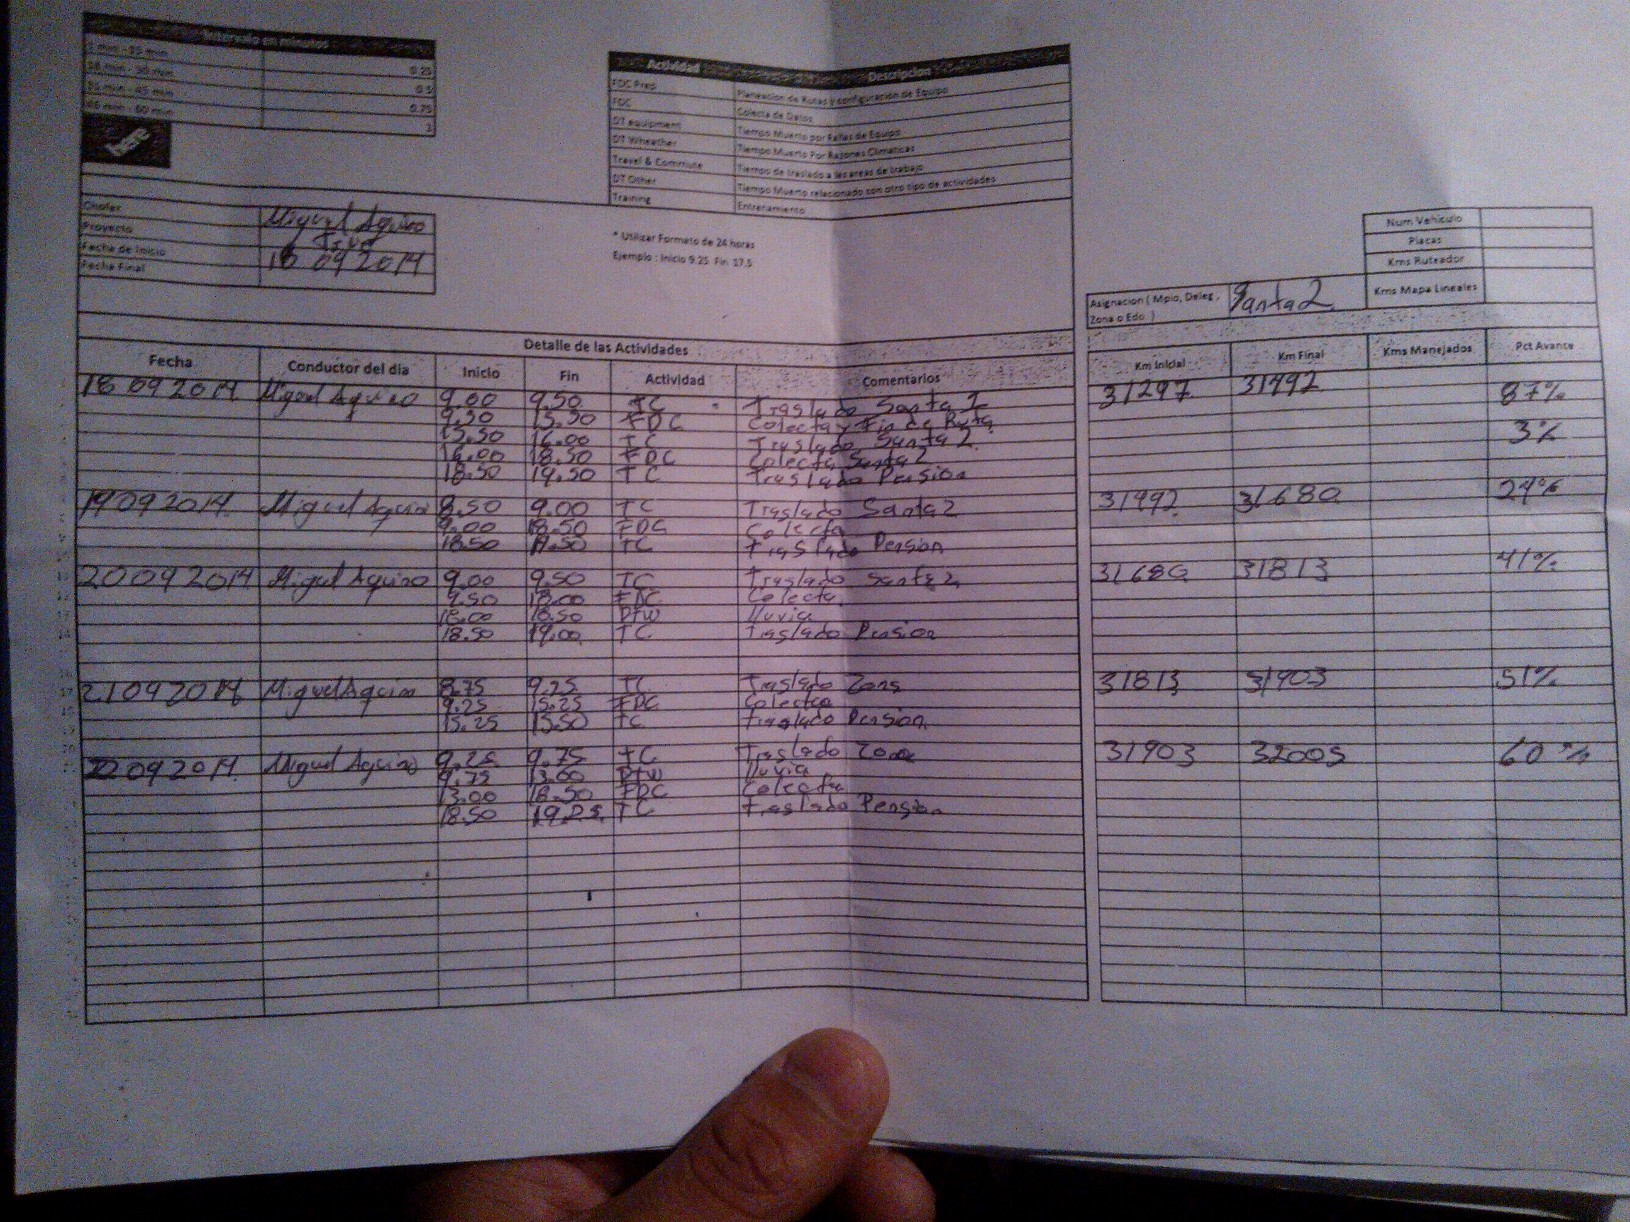 Intervalo en minutos
1 min - 15 min 0.25
16 min - 30 min 0.5
31 min - 45 min 0.75
46 min - 60 min 1
here
Actividad Descripcion
FDC Prep Planeacion de Rutas y configuración de Equipo
FDC Colecta de Datos
DT equipment Tiempo Muerto por Fallas de Equipo
DT Wheather Tiempo Muerto Por Razones Climaticas
Travel & Commute Tiempo de traslado a las areas de trabajo
DT Other Tiempo Muerto relacionado con otro tipo de actividades
Training Entrenamiento
Chofer Miguel Aquino
Proyecto
Fecha de Inicio 18 09 2014
Fecha Final
* Utilizar Formato de 24 horas
Ejemplo : Inicio 9.25 Fin 17.5
Num Vehiculo
Placas
Kms Ruteador
Kms Mapa Lineales
Asignacion ( Mpio, Deleg , Zona o Edo ) Santa 2
Detalle de las Actividades
Fecha Conductor del dia Inicio Fin Actividad Comentarios Km Inicial Km Final Kms Manejados Pct Avance
18 09 2014 Miguel Aquino 9.00 9.50 TC Traslado Santa 1 31297 31492 87%
9.50 15.50 FDC Colecta y Fin de Ruta
15.50 16.00 TC Traslado Santa 2 3%
16.00 18.50 FDC Colecta Santa 2
18.50 19.50 TC Traslado Pension
19 09 2014 Miguel Aquino 8.50 9.00 TC Traslado Santa 2 31492 31680 24%
9.00 18.50 FDC Colecta
18.50 19.50 TC Traslado Pension
20 09 2014 Miguel Aquino 9.00 9.50 TC Traslado Santa 2 31680 31813 41%
9.50 18.00 FDC Colecta
18.00 18.50 DTW lluvia
18.50 19.00 TC Traslado Pension
21 09 2014 Miguel Aquino 8.75 9.25 TC Traslado Zona 31813 31903 51%
9.25 15.25 FDC Colecta
15.25 15.50 TC Traslado Pension
22 09 2014 Miguel Aquino 9.25 9.75 TC Traslado Zona 31903 32005 60%
9.75 13.00 DTW lluvia
13.00 18.50 FDC Colecta
18.50 19.25 TC Traslado Pension